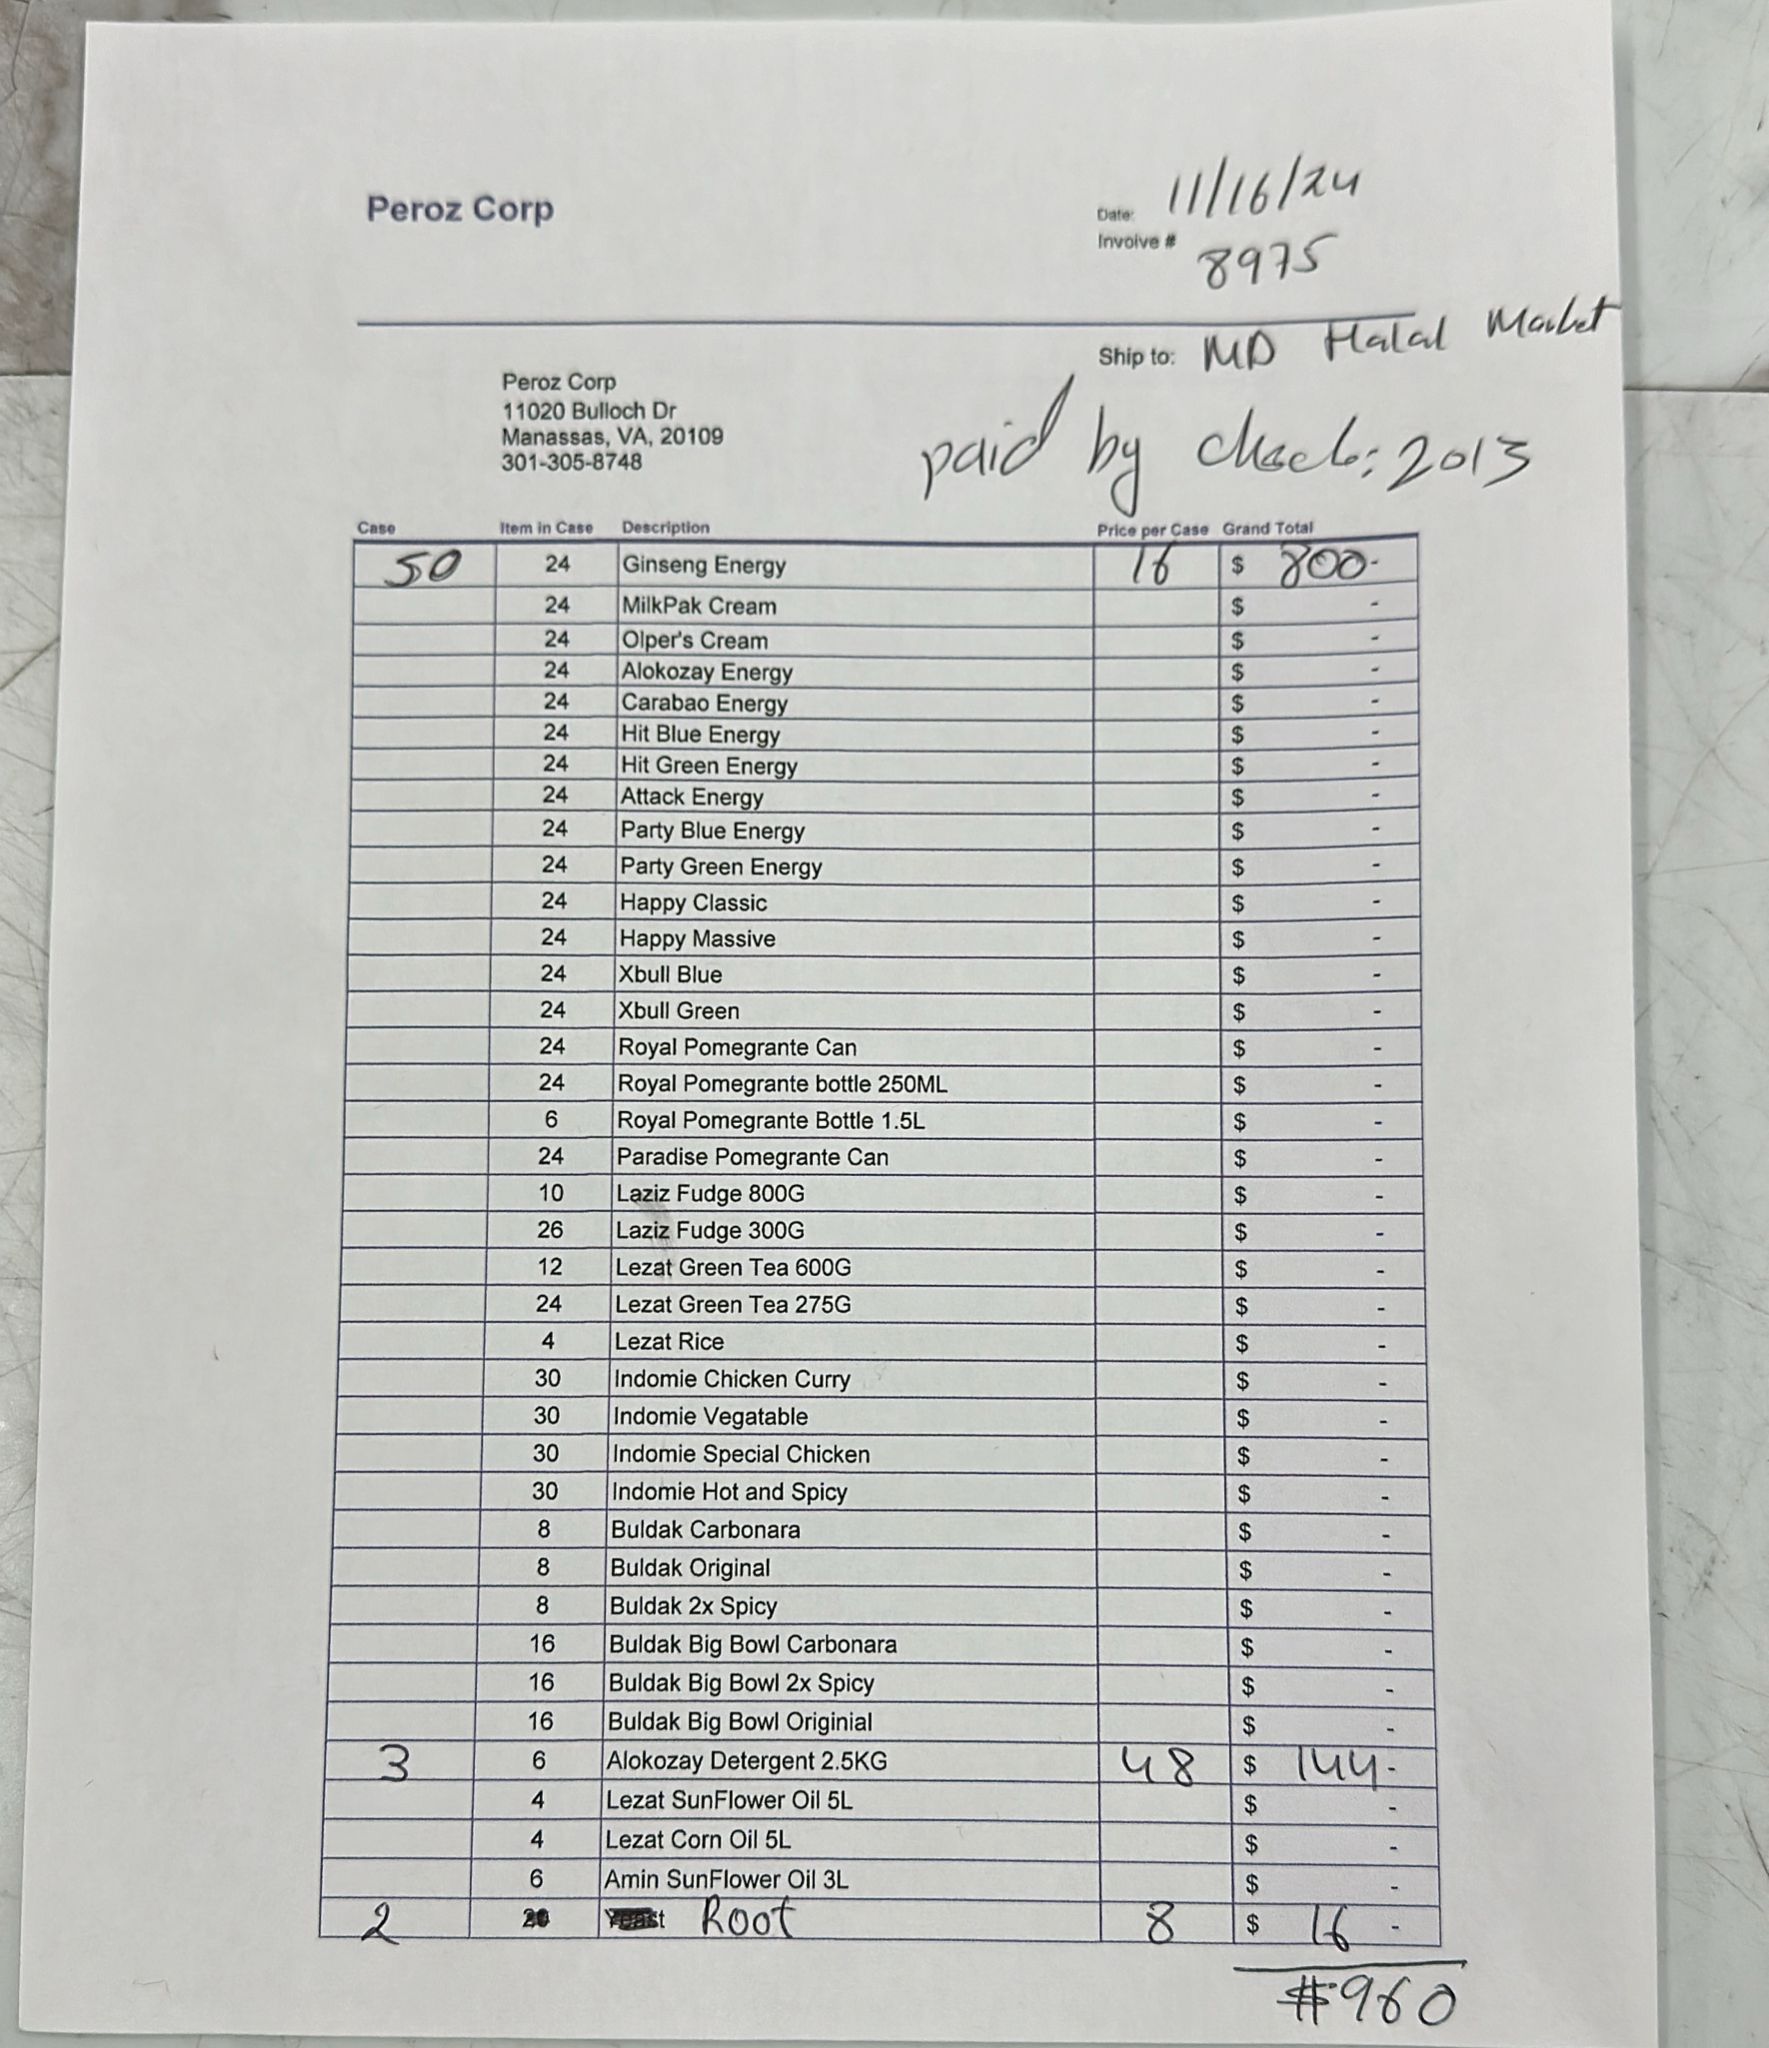 Peroz Corp
Date: 11/16/24
Involve # 8975
Ship to: MD Halal Market
Peroz Corp
11020 Bulloch Dr
Manassas, VA, 20109
301-305-8748
paid by check: 2013
Case Item in Case Description Price per Case Grand Total
50 24 Ginseng Energy 16 $ 800-
24 MilkPak Cream $ -
24 Olper's Cream $ -
24 Alokozay Energy $ -
24 Carabao Energy $ -
24 Hit Blue Energy $ -
24 Hit Green Energy $ -
24 Attack Energy $ -
24 Party Blue Energy $ -
24 Party Green Energy $ -
24 Happy Classic $ -
24 Happy Massive $ -
24 Xbull Blue $ -
24 Xbull Green $ -
24 Royal Pomegrante Can $ -
24 Royal Pomegrante bottle 250ML $ -
6 Royal Pomegrante Bottle 1.5L $ -
24 Paradise Pomegrante Can $ -
10 Laziz Fudge 800G $ -
26 Laziz Fudge 300G $ -
12 Lezat Green Tea 600G $ -
24 Lezat Green Tea 275G $ -
4 Lezat Rice $ -
30 Indomie Chicken Curry $ -
30 Indomie Vegatable $ -
30 Indomie Special Chicken $ -
30 Indomie Hot and Spicy $ -
8 Buldak Carbonara $ -
8 Buldak Original $ -
8 Buldak 2x Spicy $ -
16 Buldak Big Bowl Carbonara $ -
16 Buldak Big Bowl 2x Spicy $ -
16 Buldak Big Bowl Originial $ -
3 6 Alokozay Detergent 2.5KG 48 $ 144-
4 Lezat SunFlower Oil 5L $ -
4 Lezat Corn Oil 5L $ -
6 Amin SunFlower Oil 3L $ -
2 Root 8 $ 16 -
$960